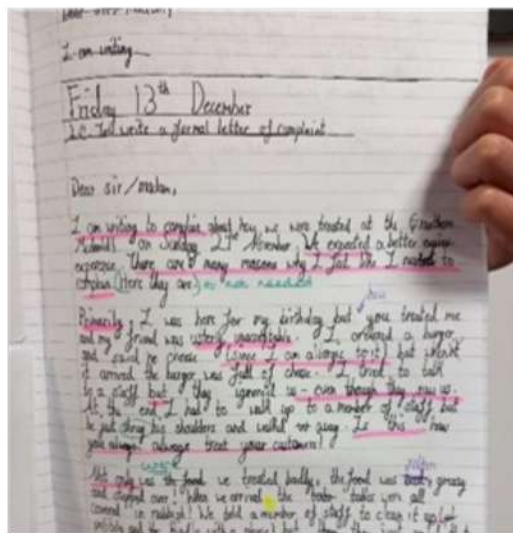 Dear Sir/Madam,
I am writing
Friday 13th December
L.C. To write a formal letter of complaint
Dear Sir/Madam,
I am writing to complain about how we were treated at the
on Sunday 21st November. We expected a better
experience. There are many reasons why I feel like I needed to
complain (Here they are) not needed
how
Primarily, I was here for my birthday but you treated me
and my friend was utterly unacceptable. I ordered a burger
and said no cheese (since I am allergic to it) but when it
it arrived the burger was full of cheese. I tried to talk
to a staff but they ignored us - even though they saw us.
At the end I had to walk up to a member of staff but
he just shrug his shoulders and walked away. Is this how
you always always treat your customers!
were
Not only was the food we treated badly, the food was greasy
and slopped over! When we arrived the tables were all
covered in rubbish! We told a member of staff to clean it up